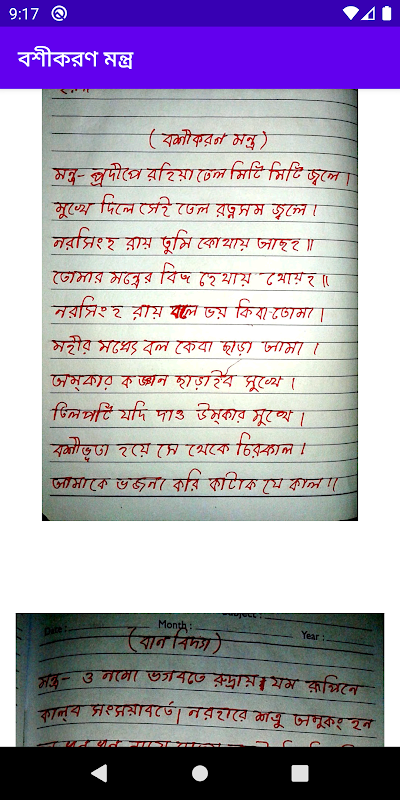 9:17
বশীকরণ মন্ত্র
(বশীকরন মন্ত্র)
মন্ত্র- প্রদীপে রহিয়া তেল মিটি মিটি জ্বলে।
মুখে দিলে সেই তেল রত্নসম জ্বলে।
নরসিংহ রায় তুমি কোথায় আছহ॥
তোমার মন্ত্রের বিজ হেথায় থোয়হ॥
নরসিংহ রায় বলে ভয় কিবা তোমা।
মহীর মধ্যে বল কেবা ছাড়া আমা।
অমুকার কাজল ছাড়াইব সুখে।
তিলপটি যদি দাও উমুকার মুখে।
বশীভূতা হয়ে সে থেকে চিরকাল।
আমাকে ভজনা করি কাটাক যে কাল॥
Date : Month : Year :
(বান বিদ্যা)
মন্ত্র- ওঁ নমো ভগবতে রুদ্রায় যম রূপিনে
কালব সংসয়াবর্তে। নরহারে শত্রু অমুকং হন